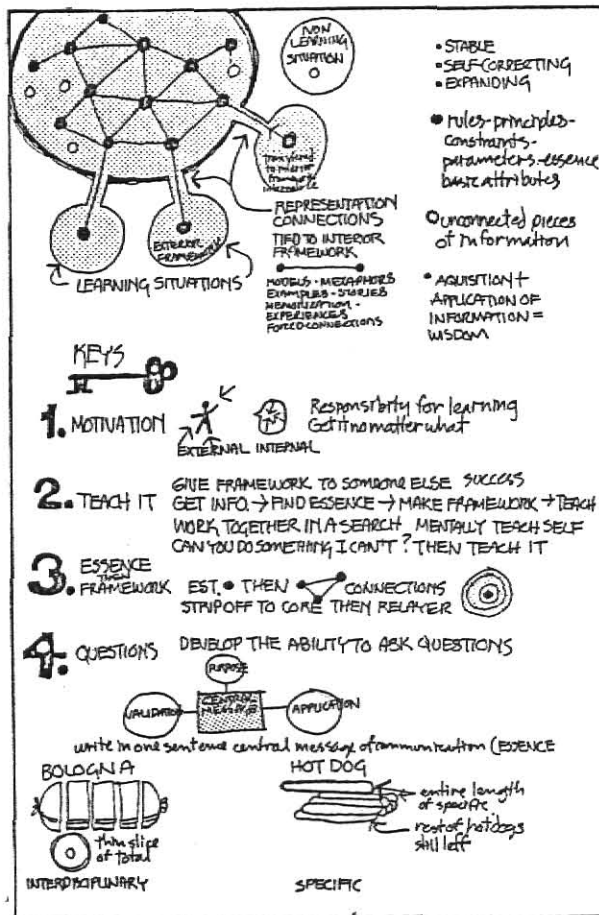 NON
LEARNING
SITUATION
• STABLE
• SELF-CORRECTING
• EXPANDING
rules-principles-
constraints-
parameters-essence
basic attributes
unconnected pieces
of information
• AQUISITION +
APPLICATION OF
INFORMATION =
WISDOM
transferred
to interior
framework
EXTERIOR
FRAMEWORK
LEARNING SITUATIONS
REPRESENTATION
CONNECTIONS
TIED TO INTERIOR
FRAMEWORK
MODELS - METAPHORS
EXAMPLES - STORIES
MEMORIZATION -
EXPERIENCES
FORCED CONNECTIONS
KEY'S
1. MOTIVATION
EXTERNAL INTERNAL
Responsibity for learning
Get it no matter what
2. TEACH IT
GIVE FRAMEWORK TO SOMEONE ELSE SUCCESS
GET INFO. → FIND ESSENCE → MAKE FRAMEWORK → TEACH
WORK TOGETHER IN A SEARCH MENTALLY TEACH SELF
CAN YOU DO SOMETHING I CAN'T? THEN TEACH IT
3. ESSENCE
THEN
FRAMEWORK
EST. • THEN CONNECTIONS
STRIP OFF TO CORE THEN RELAYER
4. QUESTIONS DEVELOP THE ABILITY TO ASK QUESTIONS
PURPOSE
VALIDATION
CENTRAL
MESSAGE
APPLICATION
write in one sentence central message of communication (ESSENCE
BOLOGNA
thin slice
of total
INTERDISIPLINARY
HOT DOG
entire length
of specific
rest of hotdogs
still left
SPECIFIC